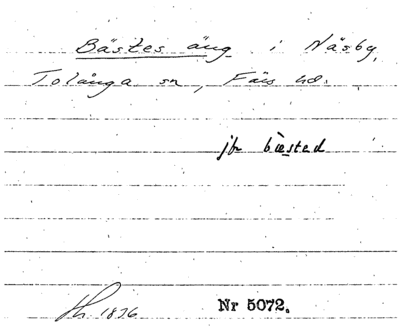 Bästes äng i Näsby,
Tolånga sn, Färs hd.
jfr bæsted
1876 Nr 5072.